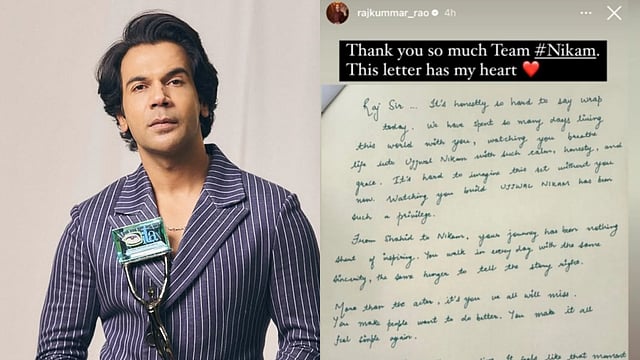 rajkummar_rao 4h
Thank you so much Team #Nikam.
This letter has my heart
Raj Sir... It's honestly so hard to say wrap
today. We have spent so many days living
this world with you, watching you breathe
life into Ujjwal Nikam with such calm, honesty, and
grace. It's hard to imagine this set without you
now. Watching you build UJJWAL NIKAM has been
such a privilege.
From Shahid to Nikam, your journey has been nothing
short of inspiring. You walk in every day with the same
sincerity, the same hunger to tell the story right.
More than the actor, it's you we all will miss.
You make people want to do better. You make it all
feel simple again.
like that